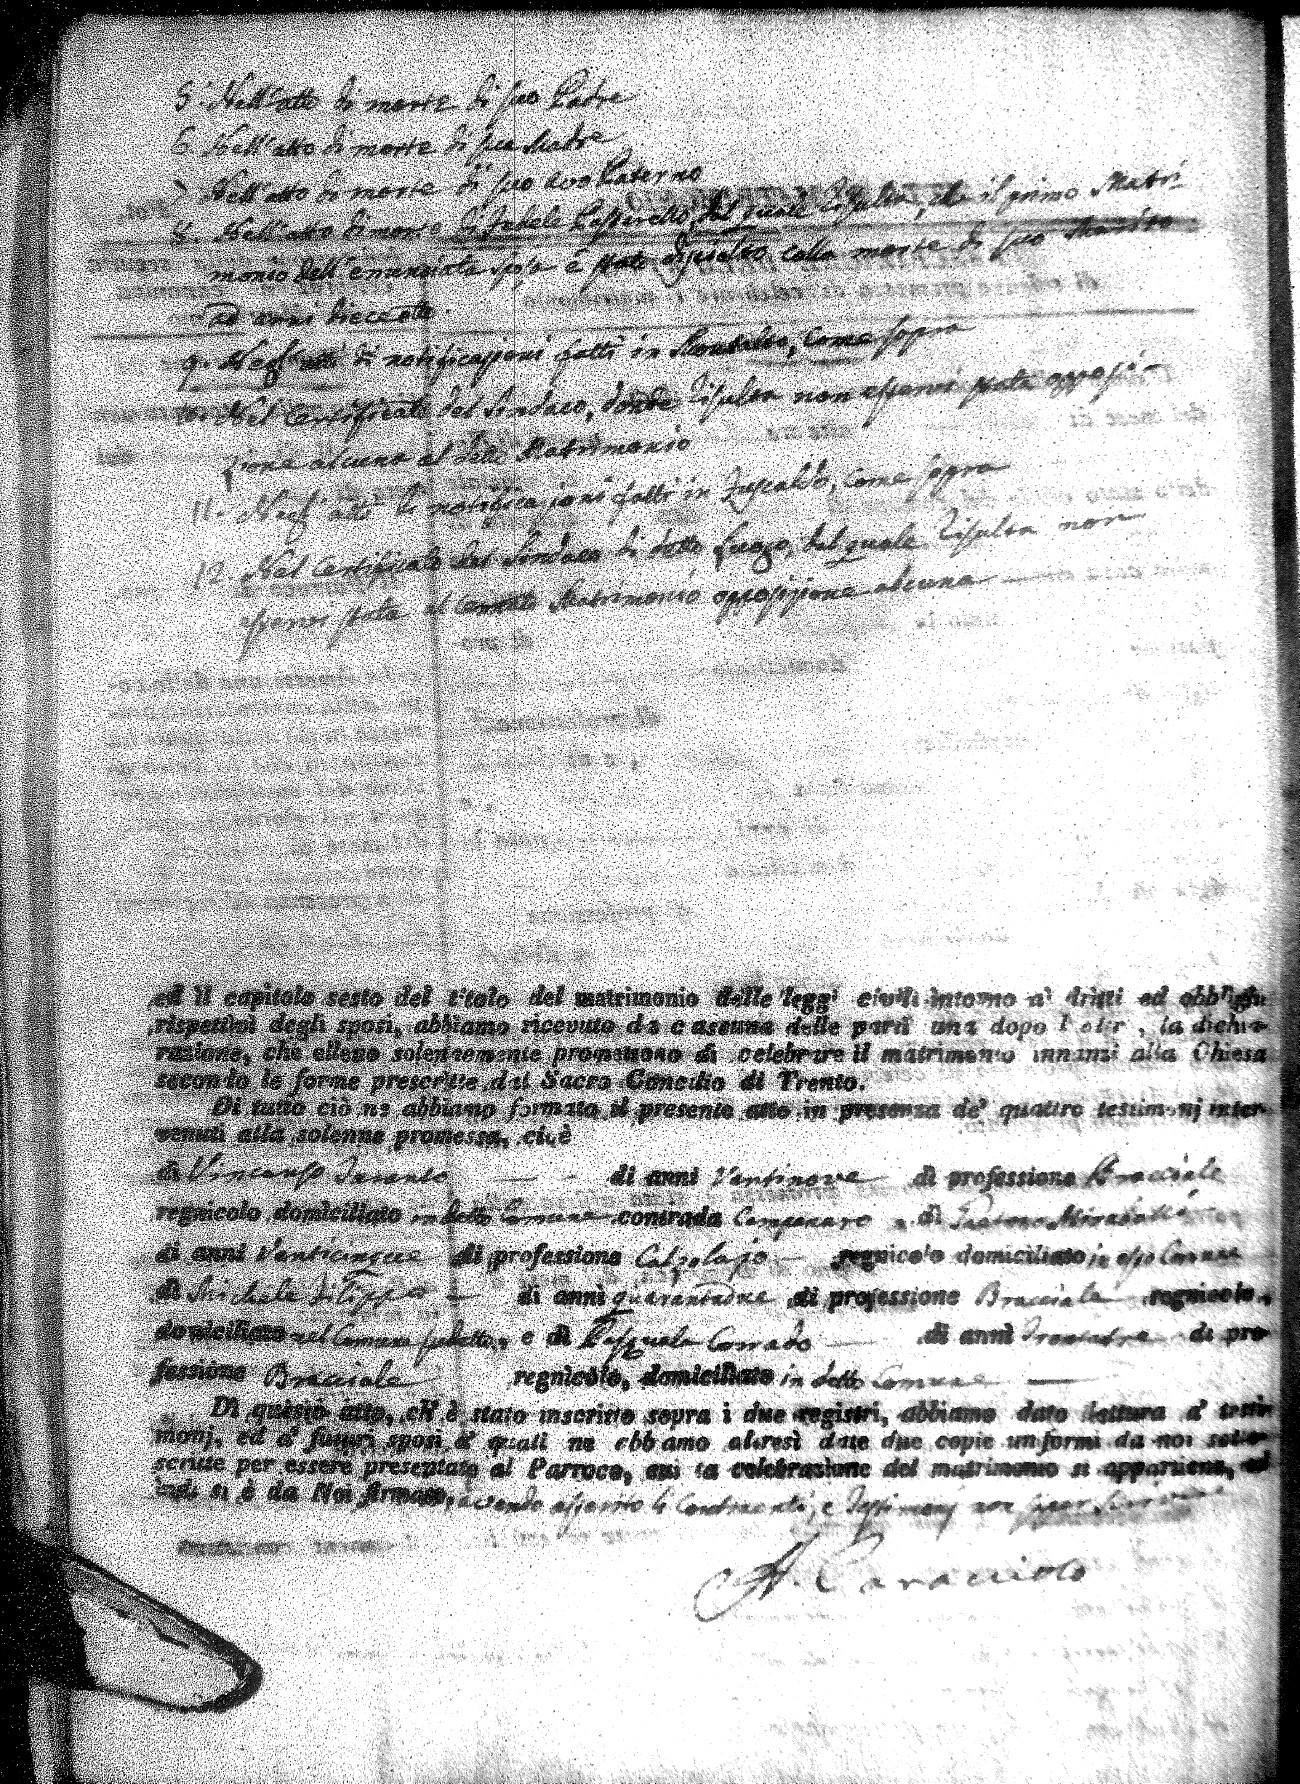 5. Nell'atto di morte di suo Padre
6. Nell'atto di morte di sua Madre
7. Nell'atto di morte di suo avo Paterno
8. Nell'atto di morte di Fedele dal quale risulta, che il primo Matri-
monio dell'enunciata sposa è stato disciolto colla morte di suo Marito
ad anni dieciotto.
9. Negl'atti di notificazioni fatti in Montalto, come sopra
10. Nel Certificato del Sindaco, donde risulta non essersi stata opposi-
zione alcuna al detto Matrimonio
11. Negl'atti di notificazioni fatti in Fuscaldo, come sopra
12. Nel Certificato del Sindaco di detto luogo, dal quale risulta non
essersi stata al Matrimonio opposizione alcuna
ed il capitolo sesto del titolo del matrimonio delle leggi civili intorno ai dritti ed obblighi
rispettivi degli sposi, abbiamo ricevuto da ciascuna delle parti una dopo l'altra, la dichia-
razione, che elleno solennemente promettono di celebrare il matrimonio innanzi alla Chiesa
secondo le forme prescritte dal Sacro Concilio di Trento.
Di tutto ciò ne abbiamo formato il presente atto in presenza de' quattro testimonj inter-
venuti alla solenne promessa, cioè
di Vincenzo Taranto di anni Ventinove di professione Bracciale
regnicolo domiciliato in detto Comune contrada Campanaro di Mirabelli
di anni Venticinque di professione Calzolajo regnicolo domiciliato in esso Comune
di Michele Filippo di anni quarantadue di professione Bracciale regnicolo,
domiciliato nel Comune sudetto, e di Pasquale Corrado di anni Trentatre di pro-
fessione Bracciale regnicolo, domiciliato in detto Comune
Di questo atto, ch'è stato inscritto sopra i due registri, abbiamo dato lettura a' testi-
monj, ed a' futuri sposi a' quali ne abbiamo altresì date due copie uniformi da noi sotto-
scritte per essere presentate al Parroco, cui la celebrazione del matrimonio si appartiene, ed
indi si è da Noi firmato, avendo asserito li Contraenti, e Testimonj non saper scrivere
A. Caracciolo